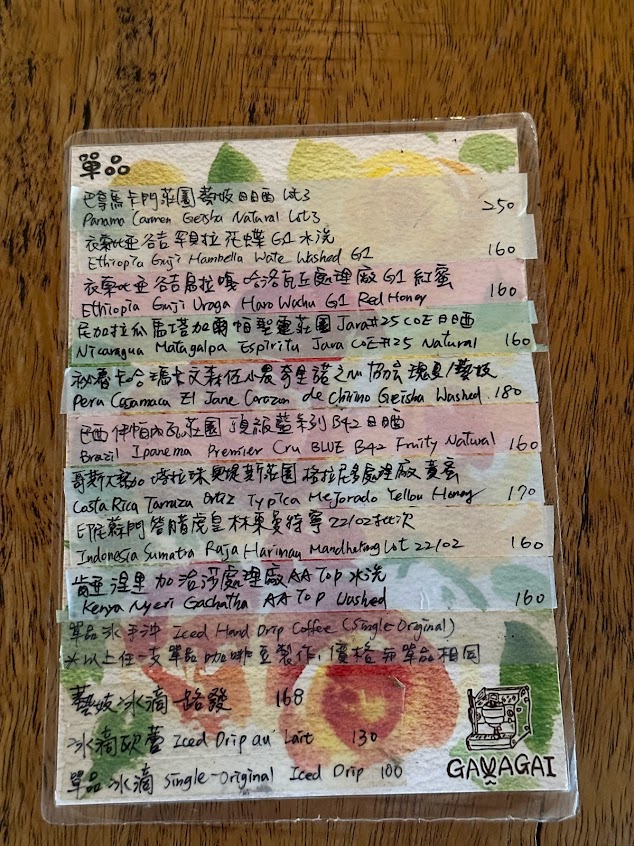 單品
巴拿馬卡門莊園藝妓日曬 Lot3 250
Panama Carmen Geisha Natural Lot3
衣索比亞 谷吉 罕貝拉 花蝶 G1 水洗 160
Ethiopia Guji Hambella Wate Washed G1
衣索比亞 谷吉 烏拉嘎 哈洛瓦丘處理廠 G1 紅蜜 160
Ethiopia Guji Uraga Haro Wachu G1 Red Honey
尼加拉瓜 馬塔加爾帕 聖靈莊園 Java#25 CoE 日曬
Nicaragua Matagalpa Espiritu Java CoE#25 Natural 160
秘魯 卡哈瑪卡 文森佐小農 奇里諾之心 協會 瑰夏/藝妓
Peru Cajamaca El Jane Corazon de Chirino Geisha Washed 180
巴西 伊帕內瓦莊園 頂級藍系列 B42 日曬
Brazil Ipanema Premier Cru BLUE B42 Fruity Natural 160
哥斯大黎加 塔拉珠 奧堤斯莊園 格拉尼多處理廠 黃蜜
Costa Rica Tarrazu Ortiz Typica Mejorado Yellow Honey 170
印尼 蘇門答臘 虎皇 林東曼特寧 22/02批次
Indonesia Sumatra Raja Harimau Mandheling Lot 22/02 160
肯亞 涅里 加洽莎處理廠 AA TOP 水洗
Kenya Nyeri Gachatha AA TOP Washed 160
單品冰手沖 Iced Hand Drip Coffee (Single-Original)
*以上任一支單品咖啡豆製作，價格與單品相同
藝妓冰滴 一路發 168
冰滴歐蕾 Iced Drip au' Lait 130
單品冰滴 Single-Original Iced Drip 100
GAVAGAI